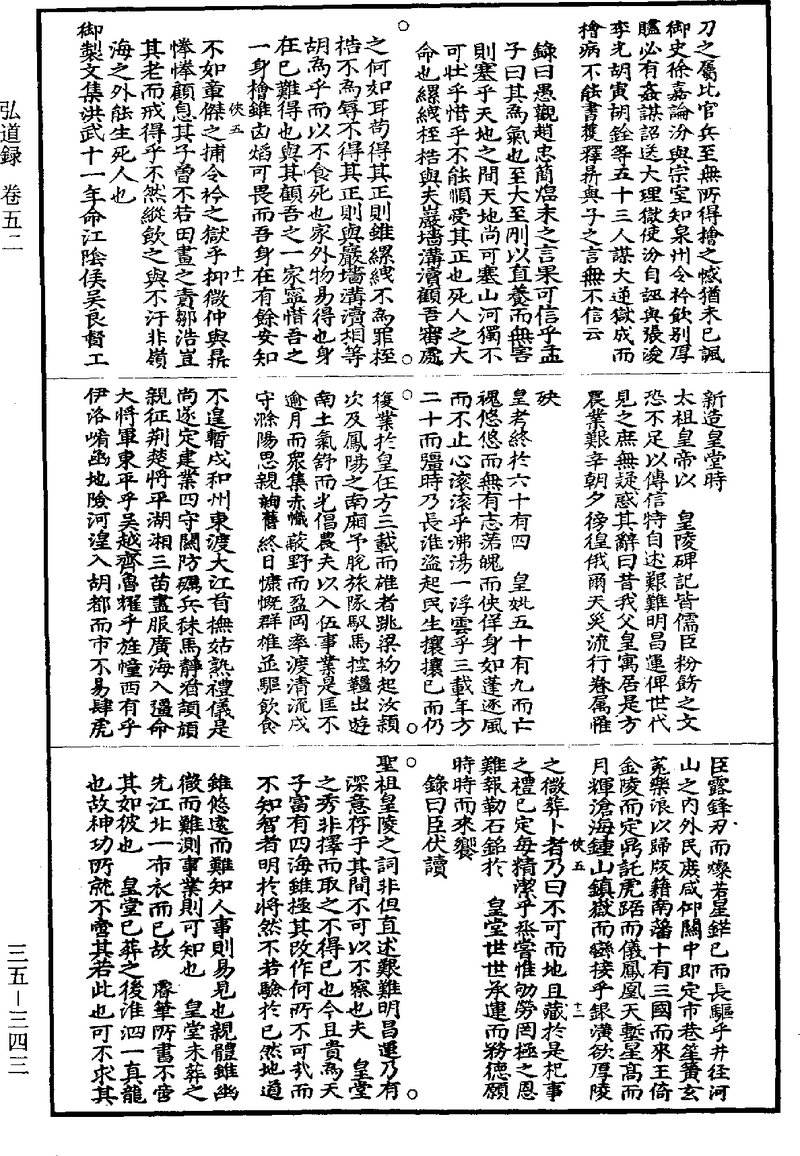 刀之屬比官兵至無所得檜之憾猶未已諷
御史徐嘉論汾與宗室知泉州令衿飲别厚
贐必有姦謀詔送大理獄使汾自誣與張浚
李光胡寅胡銓等五十三人謀大逆獄成而
檜病不能書獲釋鼎與子之言無不信云
錄曰愚觀趙忠簡熺未之言果可信乎孟
子曰其為氣也至大至剛以直養而無害
則塞乎天地之間天地尚可塞山河獨不
可壯乎惜乎不能順受其正也死人之大
命也縲絏桎梏與夫巖墻溝瀆顧吾審處
之何如耳苟得其正則雖縲絏不為罪桎
梏不為辱不得其正則與巖墻溝瀆相等
胡為乎而以不食死也家外物易得也身
在己難得也與其顧吾之一家寧惜吾之
一身檜雖凶焰可畏而吾身在有餘安知
不如童傑之捕令衿之獄乎抑徵仲與鼎
俠五 十一
惓惓顧息其子曾不若田晝之責鄒浩豈
其老而戒得乎不然縱飲之與不汗非嶺
海之外能生死人也
御製文集洪武十一年命江陰侯吳良督工
新造皇堂時
太祖皇帝以 皇陵碑記皆儒臣粉飾之文
恐不足以傳信特自述艱難明昌運俾世代
見之庶無疑惑其辭曰昔我父皇寓居是方
農業艱辛朝夕徬徨俄爾天災流行眷屬罹
殃
皇考終於六十有四 皇妣五十有九而亡
魂悠悠而無有志落魄而佒佯身如蓬逐風
而不止心滾滾乎沸湯一浮雲乎三載年方
二十而彊時乃長淮盜起民生攘攘已而仍
復業於皇住方三載而雄者跳梁初起汝潁
次及鳳陽之南廂予脫旅隊馭馬控韁出遊
南土氣舒而光倡農夫以入伍事業是匡不
逾月而衆集赤幟蔽野而盈岡率渡清流戍
守滁陽思親詢舊終日慷慨群雄並驅飲食
不遑暫戍和州東渡大江首撫姑熟禮儀是
尚遂定建業四守關防礪兵秣馬靜看頡頏
親征荆楚將平湖湘三苗盡服廣海入疆命
大將軍東平乎吳越齊魯耀乎旌幢西有乎
伊洛崤凾地險河湟入胡都而市不易肆虎
臣露鋒刃而燦若星鋩已而長驅乎井徑河
山之内外民庶咸仰關中即定市巷笙簧玄
菟樂浪以歸版籍南藩十有三國而來王倚
金陵而定鼎託虎踞而儀鳳凰天塹星高而
月輝滄海鍾山鎮嶽而巒接乎銀潢欲厚陵
俠五 十二
之微葬卜者乃曰不可而地且藏於是杞事
之禮已定每精潔乎烝嘗惟劬勞罔極之恩
難報勒石銘於 皇堂世世承運而務德願
時時而來饗
錄曰臣伏讀
聖祖皇陵之詞非但直述艱難明昌運乃有
深意存于其間不可以不察也夫 皇堂
之秀非擇而取之不得已也今且貴為天
子富有四海雖極其改作何所不可哉而
不知智者明於將然不若驗於已然地道
雖悠遠而難知人事則易見也親體雖幽
微而難測事業則可知也 皇堂未葬之
先江北一布衣而已故 睿筆所書不啻
其如彼也 皇堂已葬之後淮泗一真龍
也故神功所就不啻其若此也可不求其
弘道録 卷五二
三五—三四三